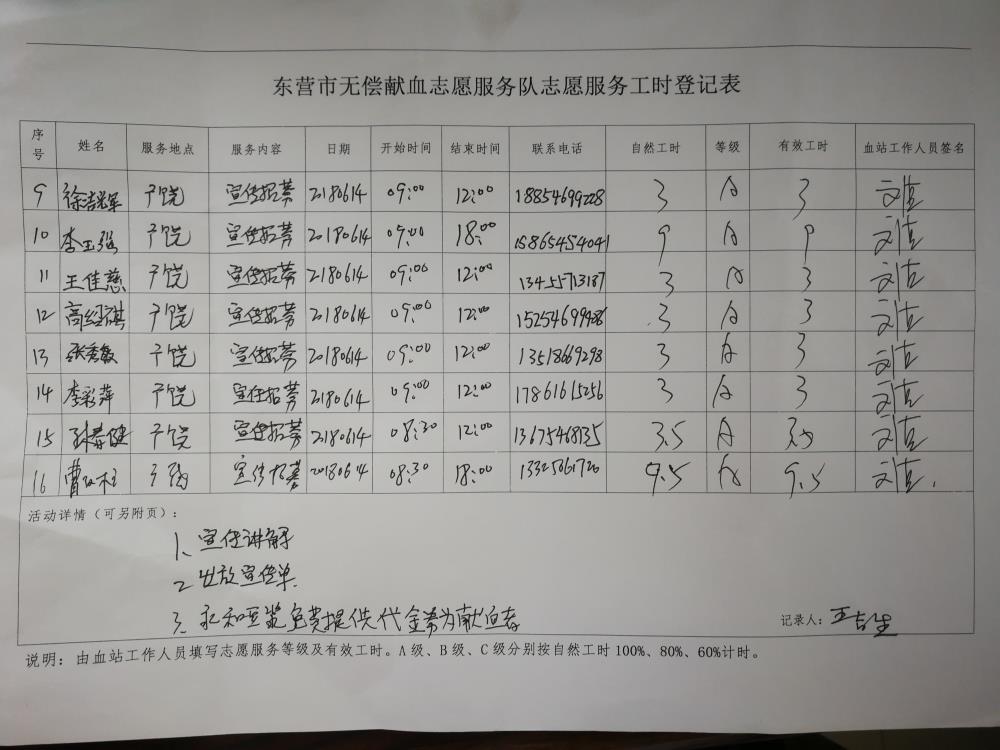 东营市无偿献血志愿服务队志愿服务工时登记表
序号 姓名 服务地点 服务内容 日期 开始时间 结束时间 联系电话 自然工时 等级 有效工时 血站工作人员签名
9 宣传招募 20180614 09:00 12:00 18854699228 3 A 3
10 李玉强 宣传招募 20180614 09:00 18:00 15865454041 9 A 9
11 王佳慈 宣传招募 20180614 09:00 12:00 13455713187 3 A 3
12 高经祺 宣传招募 20180614 09:00 12:00 3 A 3
13 张秀敏 宣传招募 20180614 09:00 12:00 13518669298 3 A 3
14 李彩萍 宣传招募 20180614 09:00 12:00 17861615256 3 A 3
15 宣传招募 20180614 08:30 12:00 13675468135 3.5 A 3.5
16 宣传招募 20180614 08:30 18:00 13325061720 9.5 A 9.5
活动详情(可另附页):
1、宣传讲解
2、发放宣传单
3、永和豆浆免费提供代金券为献血者
记录人:
说明:由血站工作人员填写志愿服务等级及有效工时。A级、B级、C级分别按自然工时100%、80%、60%计时。